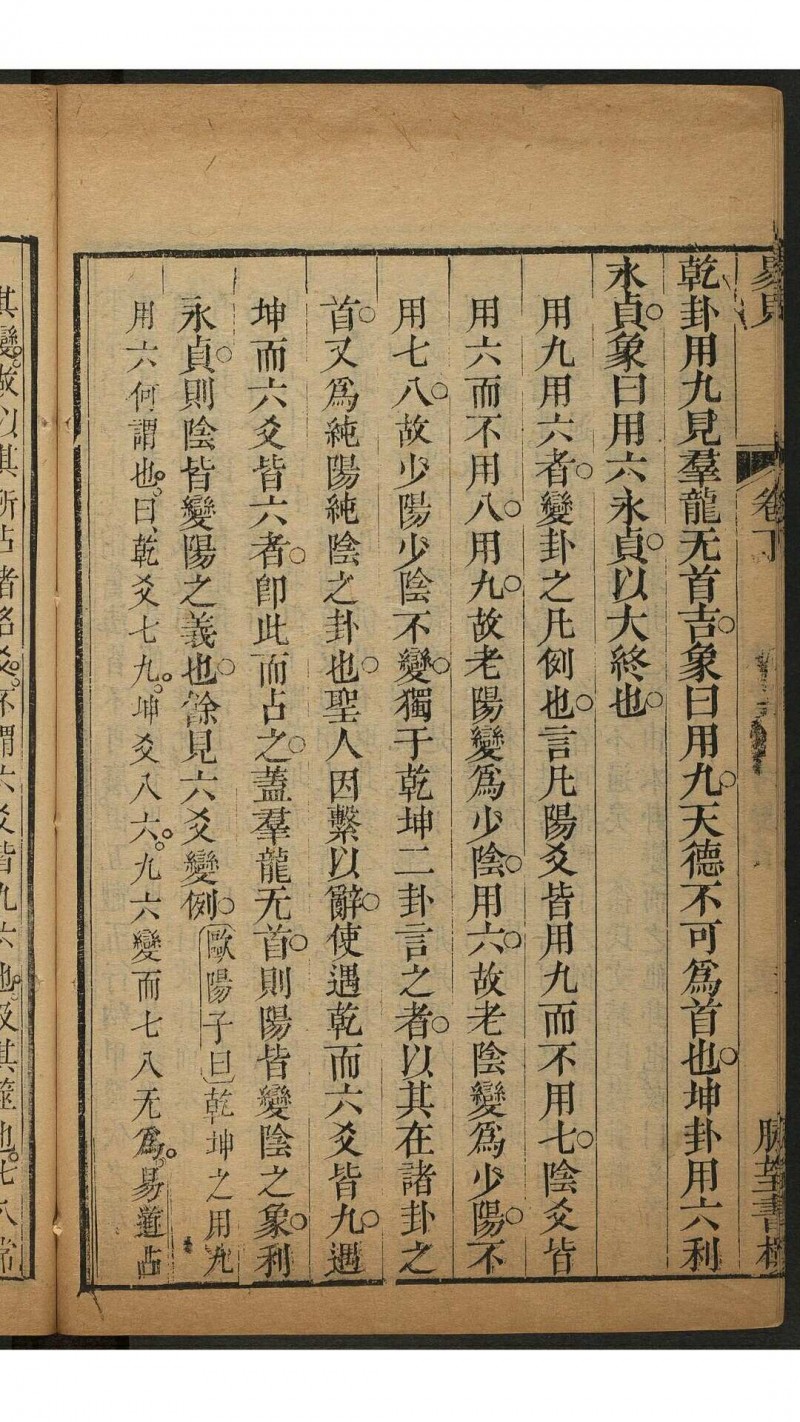 卷下
書
乾卦用九見羣龍无首吉○象曰用九○天德不可爲首也○坤卦用六利
永貞○象曰用六永貞○以大終也○
用九用六者○變卦之凡例也○言凡陽爻皆用九而不用七○陰爻皆
用六而不用八○用九○故老陽變爲少陰○用六○故老陰變爲少陽○不
用七八○故少陽少陰不變○獨于乾坤二卦言之者○以其在諸卦之
首○又爲純陽純陰之卦也○聖人因繫以辭○使遇乾而六爻皆九○遇
坤而六爻皆六者○卽此而占之○蓋羣龍无首○則陽皆變陰之象○利
永貞○則陰皆變陽之義也○餘見六爻變例○歐陽子曰乾坤之用九
用六何謂也。曰、乾爻七九。坤爻八六。九六變而七八无爲。易道占
其變。故以其所占者名爻。不謂六爻皆九六也。及其筮也。七八常